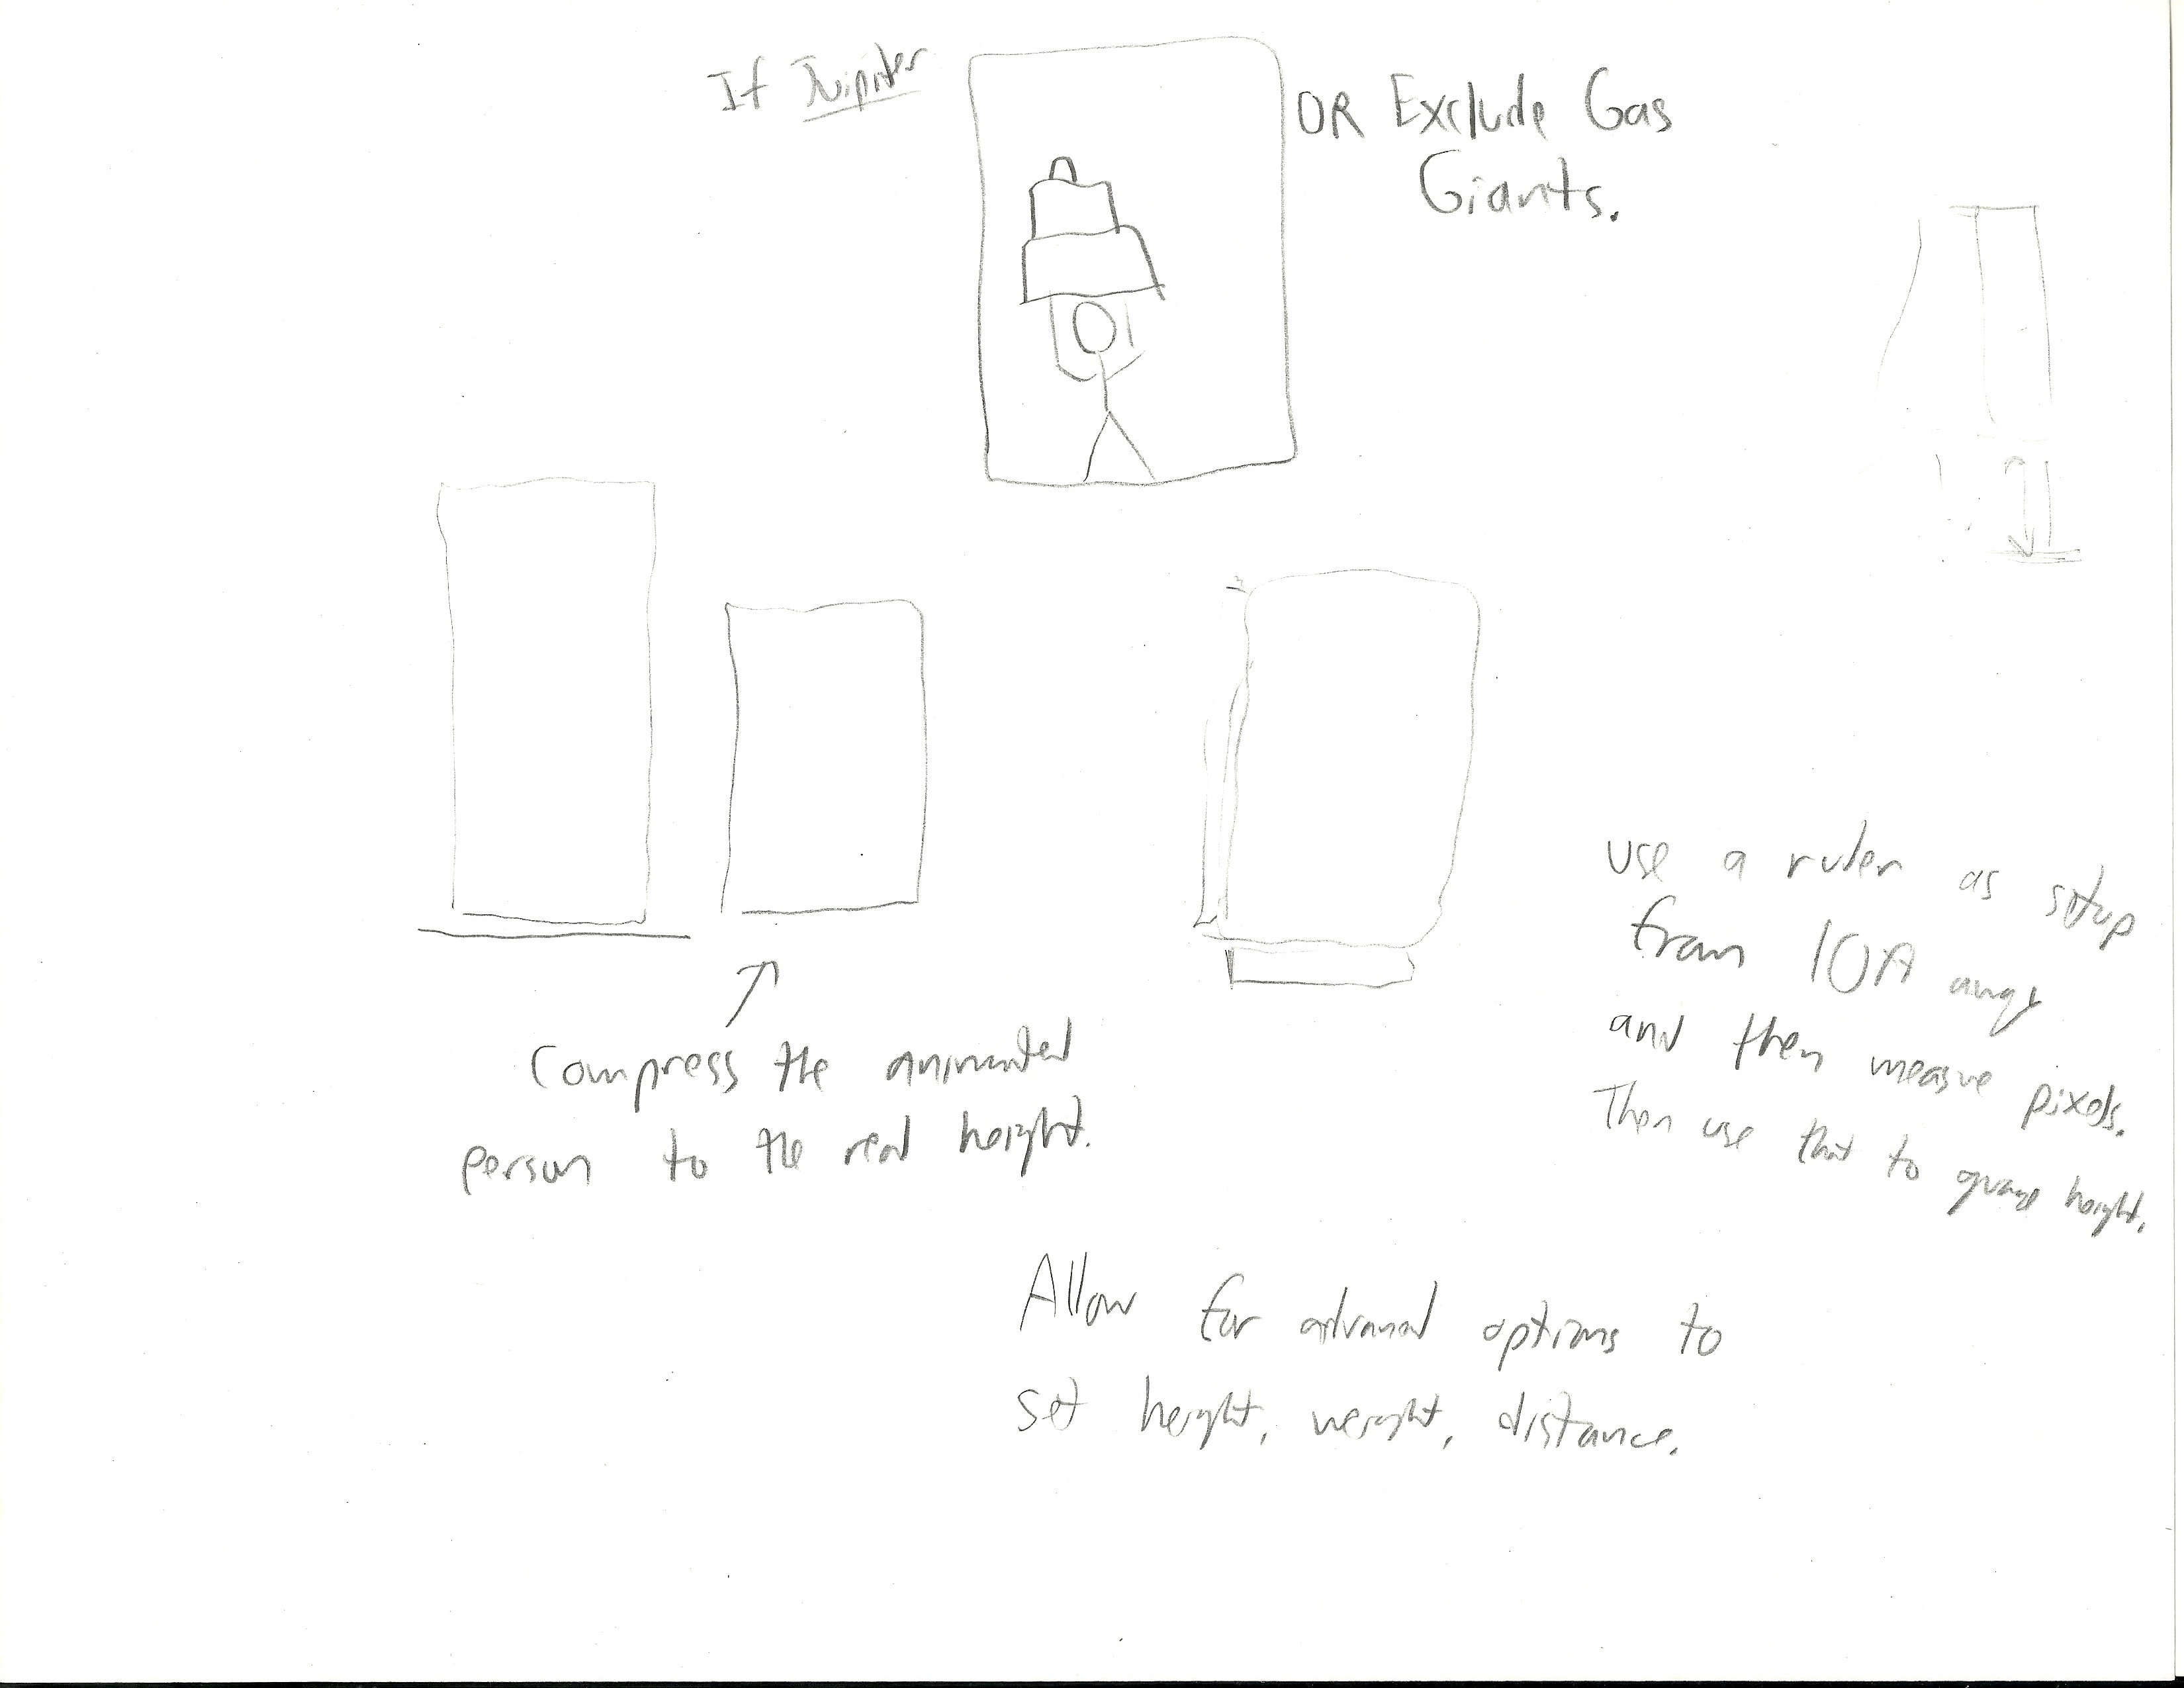 If Juipiter
OR Exclude Gas
Giants.
Compress the animated
person to the real height.
use a ruler as setup
from 10ft away
and then measure pixels.
Then use that to guage height.
Allow for advanced options to
set height, weight, distance.